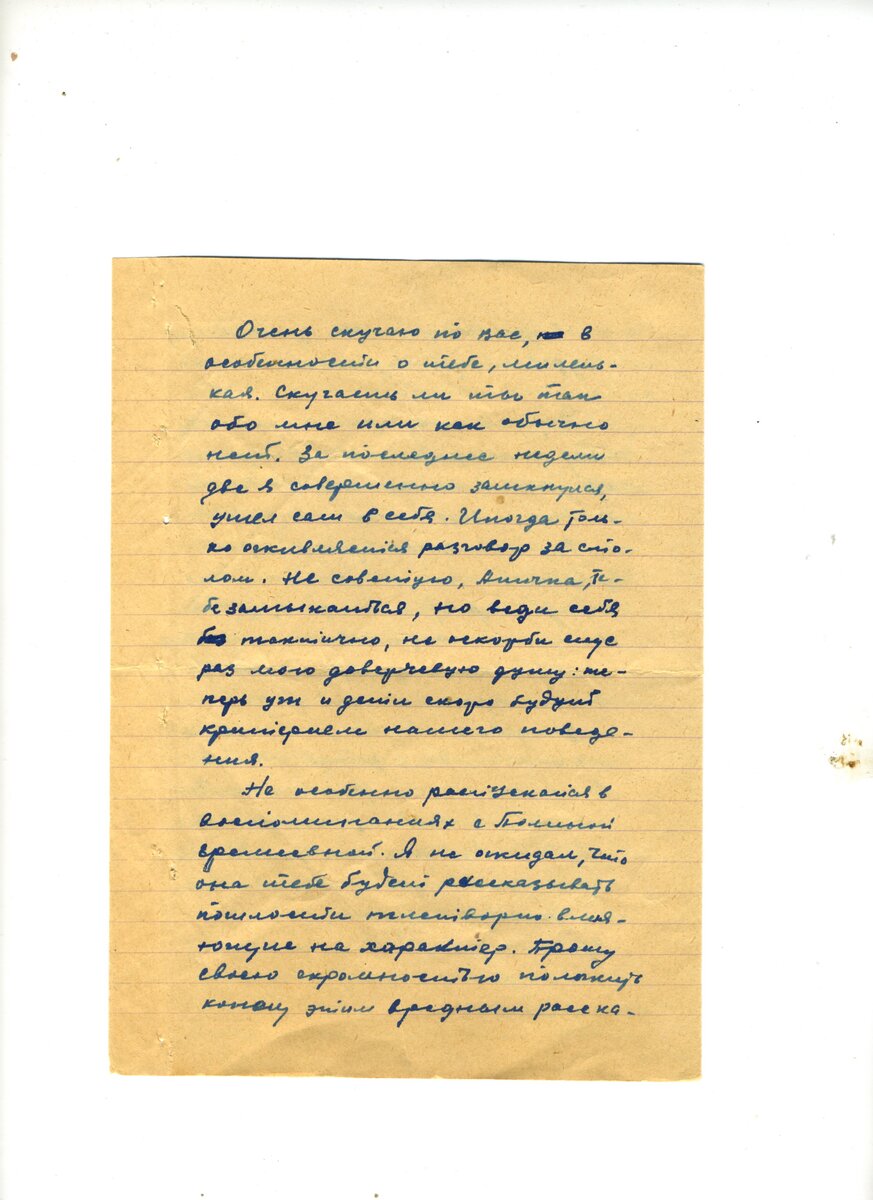 Очень скучаю по вас, в
особенности о тебе, милень-
кая. Скучаешь ли ты там
обо мне или как обычно
нет. За последние недели
две я совершенно замкнулся,
ушел сам в себя. Иногда толь-
ко оживляется разговор за сто-
лом. Не советую, Аничка, те-
бе замыкаться, но веди себя
тактично, не оскорби еще
раз мою доверчевую душу: те-
перь уж и дети скоро будут
критерием нашего поведе-
ния.
Не особенно распускайся в
воспоминаниях с Полиной
Еремеевной. Я не ожидал, что
она тебе будет рассказывать
пошлости тлетворно влия-
ющие на характер. Прошу
своею скромностью положить
конец этим вредным расска-